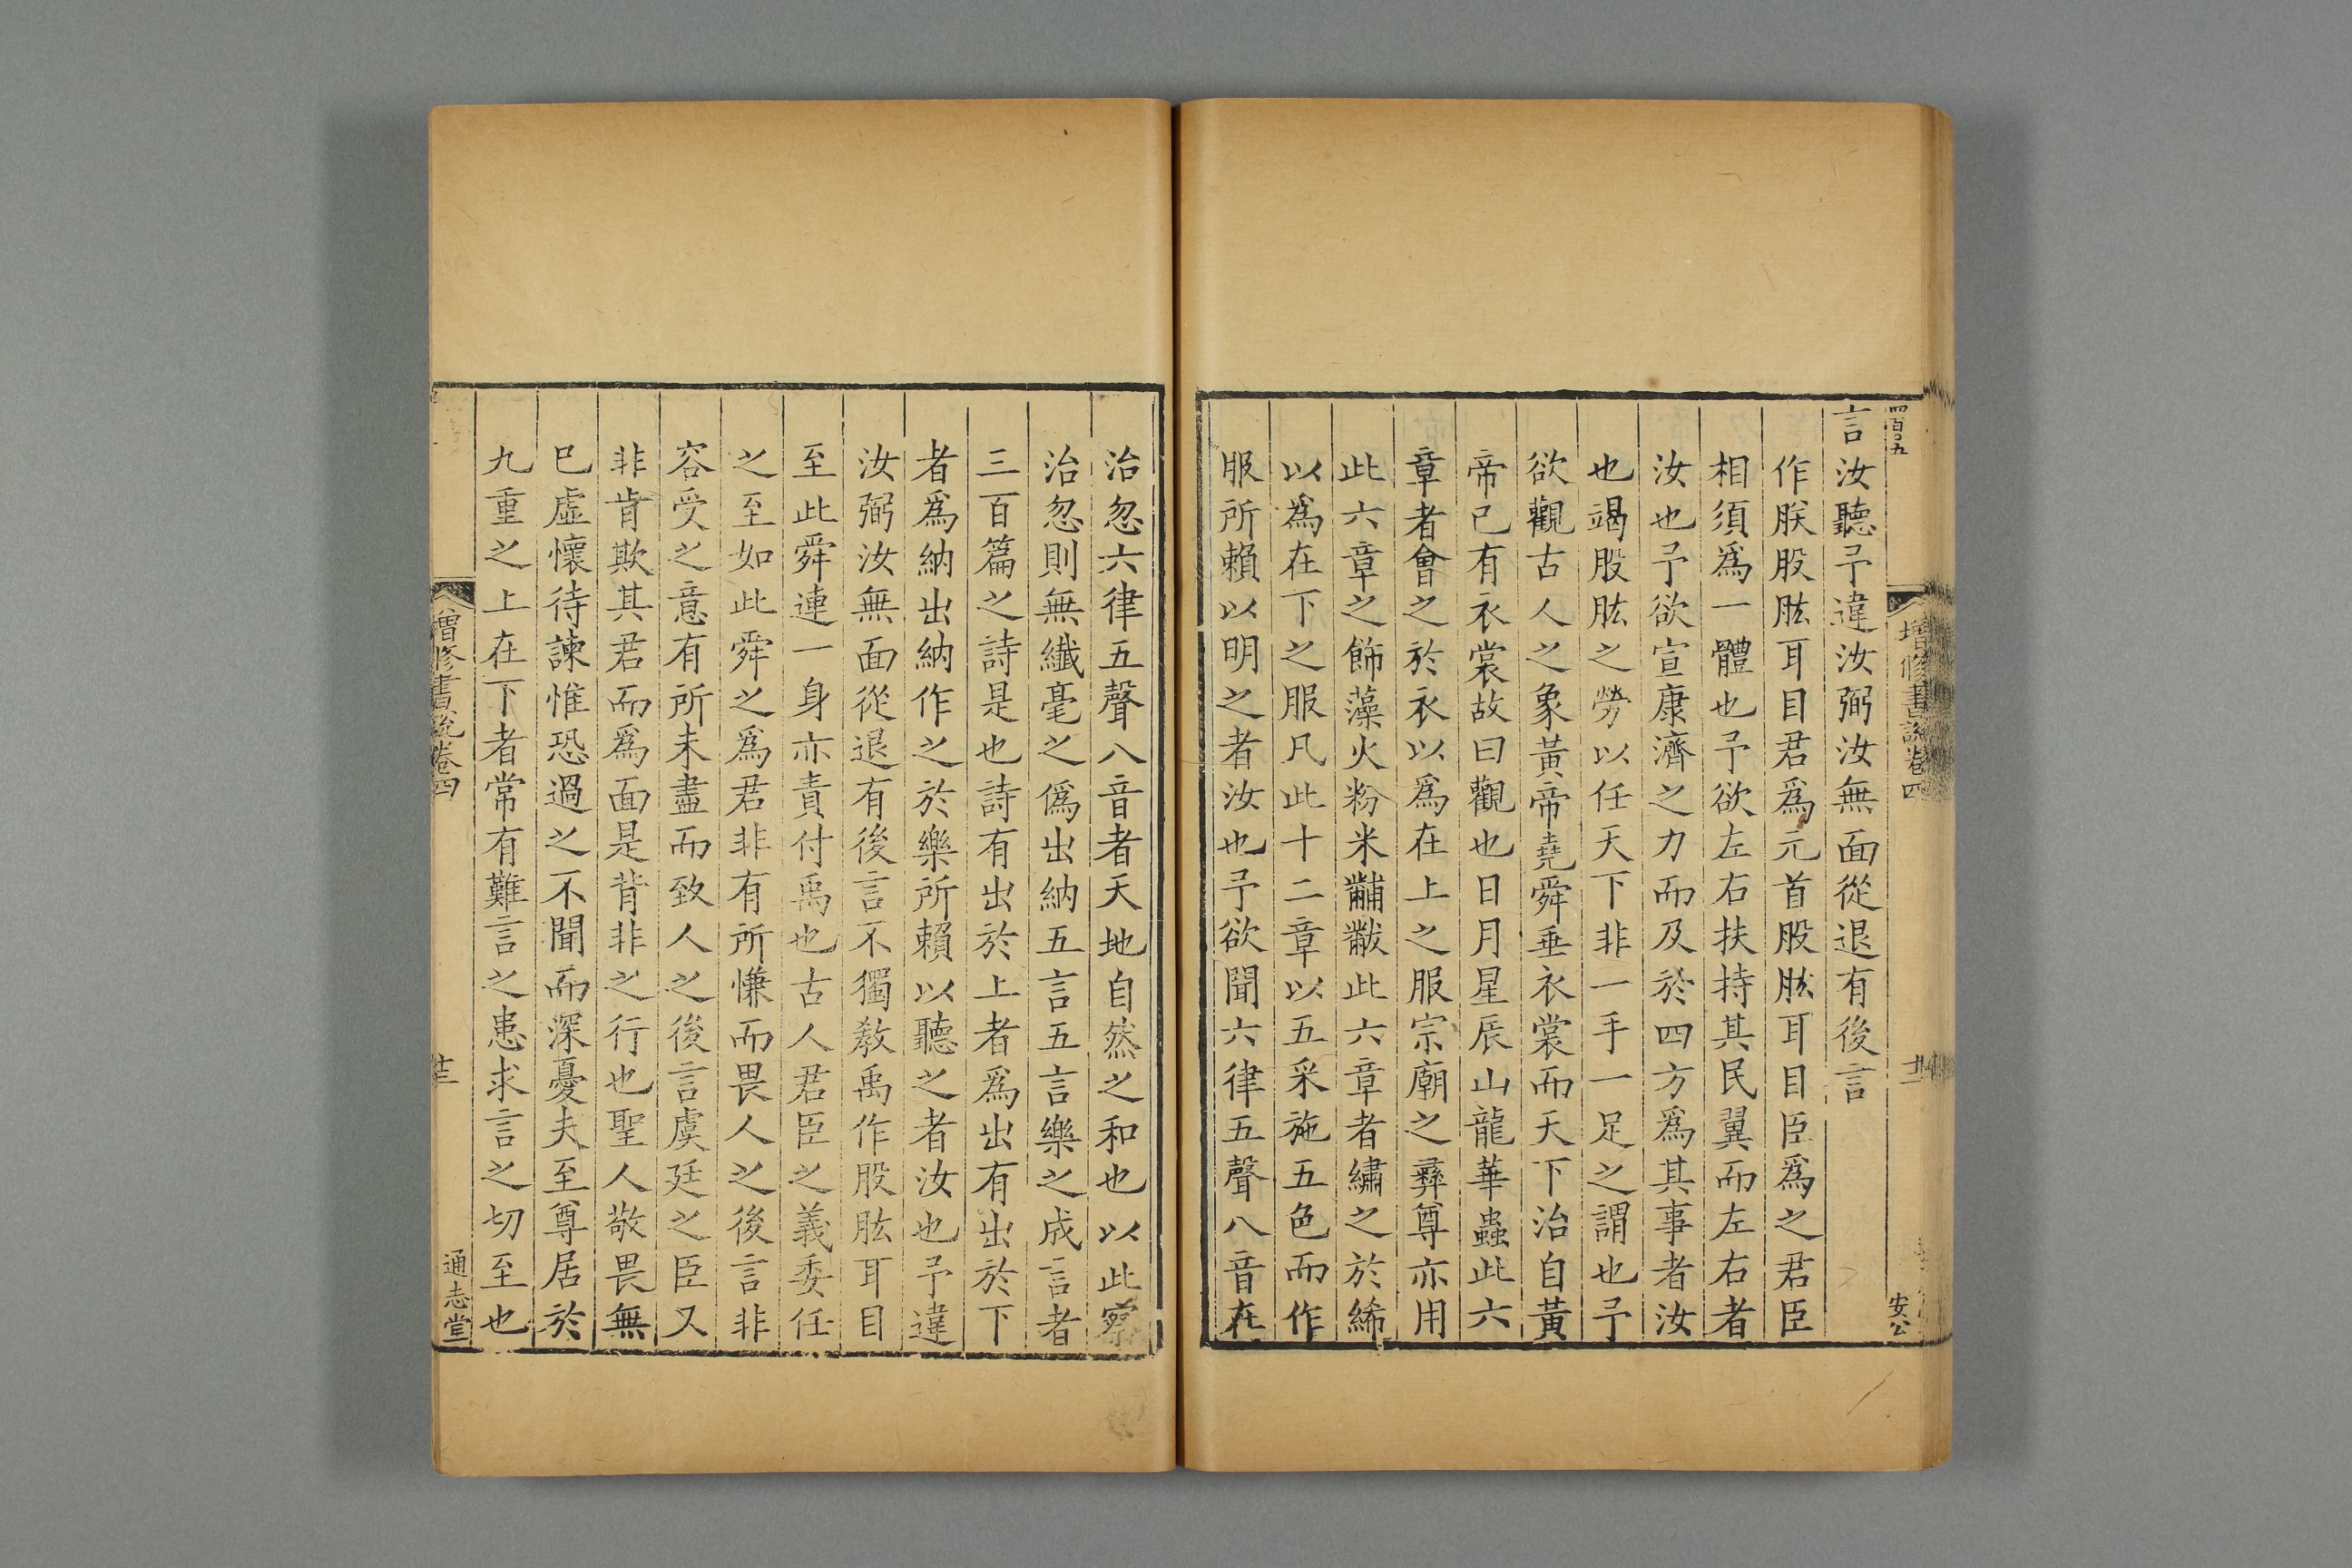 四百五
增修書說卷四
廿二
安公
言汝聽予違汝弼汝無面從退有後言
作朕股肱耳目君爲元首股肱耳目臣爲之君臣
相須爲一體也予欲左右扶持其民翼而左右者
汝也予欲宣康濟之力而及於四方爲其事者汝
也竭股肱之勞以任天下非一手一足之謂也予
欲觀古人之象黃帝堯舜垂衣裳而天下治自黃
帝已有衣裳故曰觀也日月星辰山龍華蟲此六
章者會之於衣以爲在上之服宗廟之彝尊亦用
此六章之飾藻火粉米黼黻此六章者繡之於絺
以爲在下之服凡此十二章以五采施五色而作
服所賴以明之者汝也予欲聞六律五聲八音在
治忽六律五聲八音者天地自然之和也以此察
治忽則無纎毫之僞出納五言五言樂之成言者
三百篇之詩是也詩有出於上者爲出有出於下
者爲納出納作之於樂所賴以聽之者汝也予違
汝弼汝無面從退有後言不獨敎禹作股肱耳目
至此舜連一身亦責付禹也古人君臣之義委任
之至如此舜之爲君非有所慊而畏人之後言非
容受之意有所未盡而致人之後言虞廷之臣又
非肯欺其君而爲面是背非之行也聖人敬畏無
已虛懷待諫惟恐過之不聞而深憂夫至尊居於
九重之上在下者常有難言之患求言之切至也
增修書說卷四
通志堂